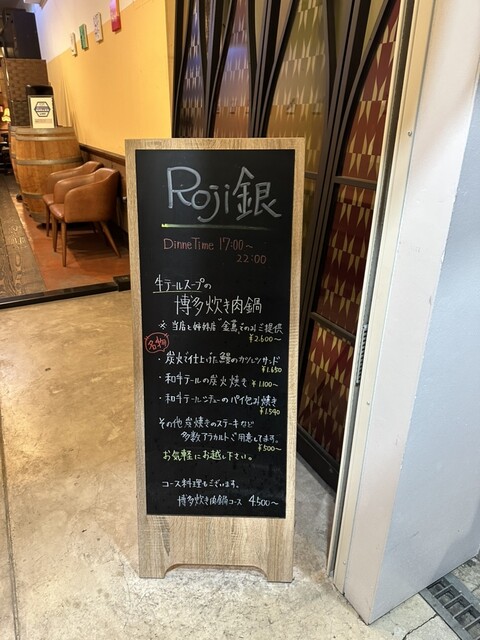 Roji銀
DinneTime 17:00〜
22:00
牛テールスープの
博多炊き肉鍋
※ 当店と姉妹店"金
のみご提供
¥2.600〜
名物
・炭火で仕上げた鰻のカツレツサンド
¥1.650
・和牛テールの炭火焼き ¥1.100〜
・和牛テールシチューのパイ包み焼き
¥1.590
その他炭焼きのステーキなど
多数アラカルトご用意してます。
¥500〜
お気軽にお越し下さい。
コース料理もございます。
博多炊き肉鍋コース 4.500〜